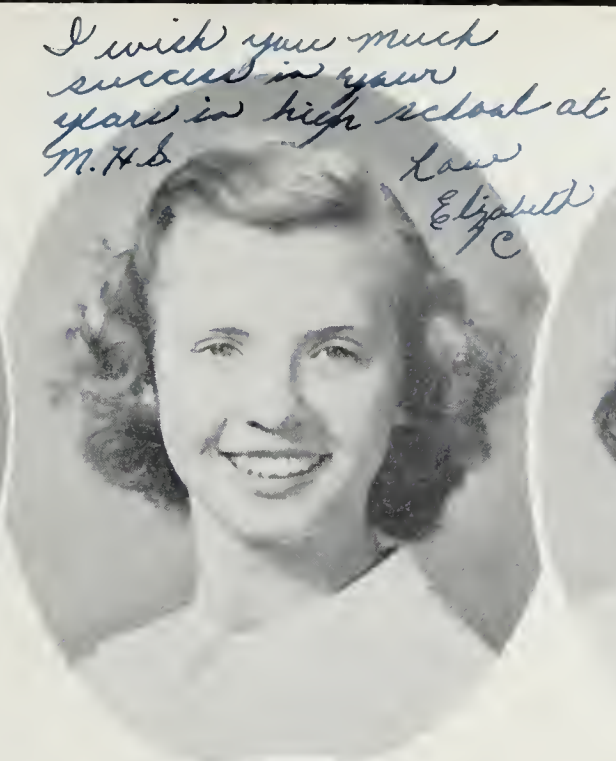 I wish you much
success in your
years in high school at
M.H.S.
Love
Elizabeth
C